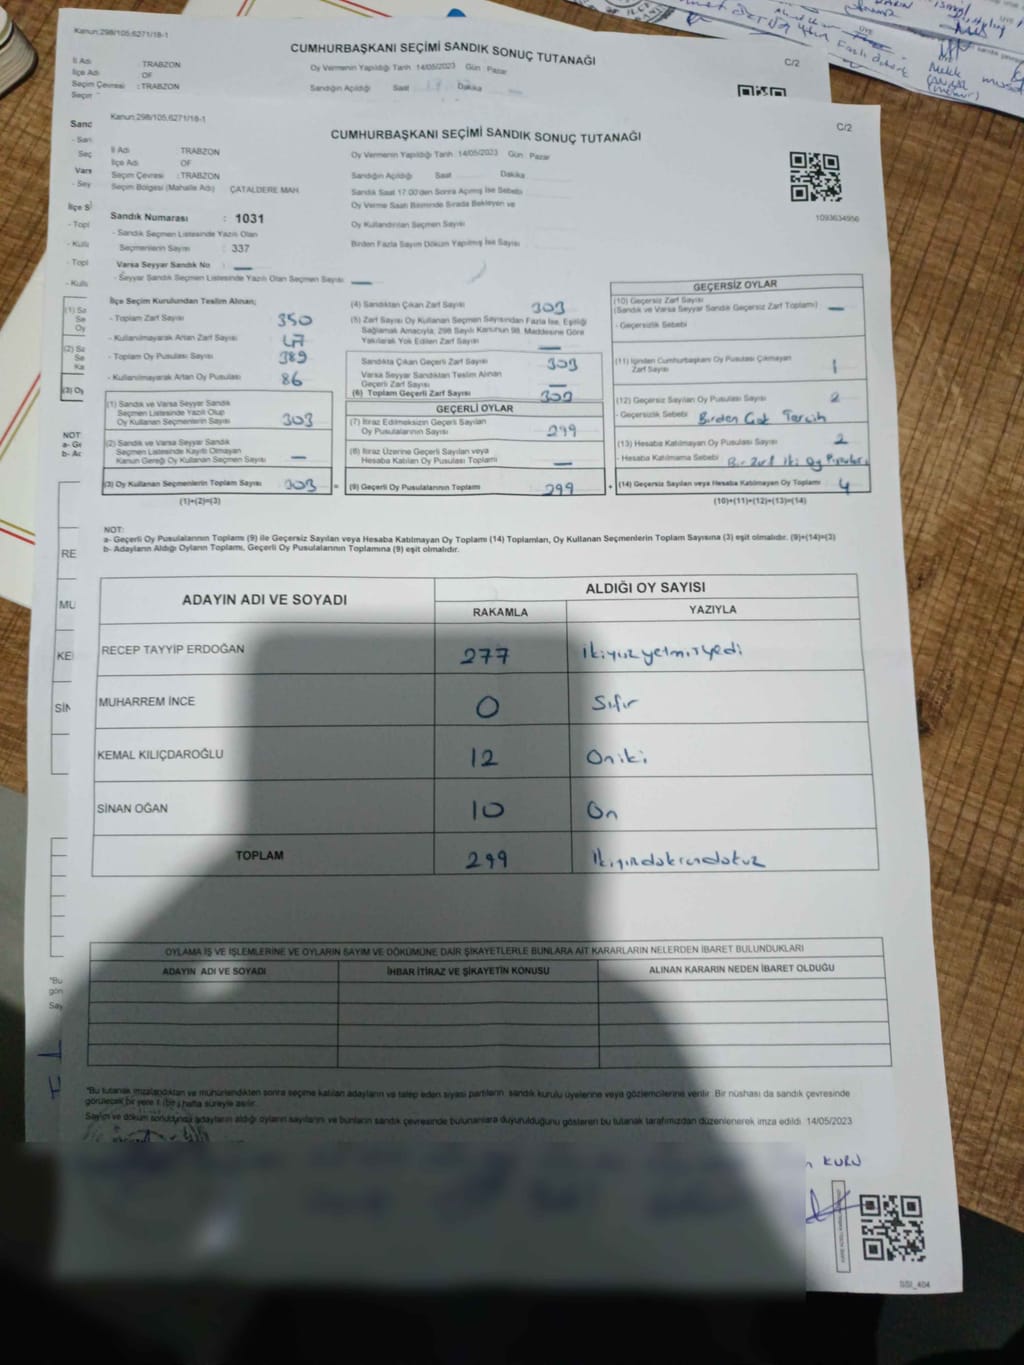 Kanun:298/105,6271/18-1
CUMHURBAŞKANI SEÇİMİ SANDIK SONUÇ TUTANAĞI
C/2
İl Adı : TRABZON
İlçe Adı : OF
Seçim Çevresi : TRABZON
Oy Vermenin Yapıldığı Tarih 14/05/2023 Gün : Pazar
Sandığın Açıldığı Saat Dakika
Kanun:298/105,6271/18-1
CUMHURBAŞKANI SEÇİMİ SANDIK SONUÇ TUTANAĞI
C/2
İl Adı : TRABZON
İlçe Adı : OF
Seçim Çevresi : TRABZON
Seçim Bölgesi (Mahalle Adı) ÇATALDERE MAH.
Oy Vermenin Yapıldığı Tarih 14/05/2023 Gün : Pazar
Sandığın Açıldığı Saat Dakika
Sandık Saat 17.00'den Sonra Açılmış İse Sebebi
Oy Verme Saati Bitiminde Sırada Bekleyen ve
Oy Kullandırılan Seçmen Sayısı
Birden Fazla Sayım Döküm Yapılmış İse Sayısı
1093634956
Sandık Numarası : 1031
- Sandık Seçmen Listesinde Yazılı Olan
Seçmenlerin Sayısı : 337
Varsa Seyyar Sandık No :
- Seyyar Sandık Seçmen Listesinde Yazılı Olan Seçmen Sayısı :
İlçe Seçim Kurulundan Teslim Alınan;
- Toplam Zarf Sayısı 350
- Kullanılmayarak Artan Zarf Sayısı 47
- Toplam Oy Pusulası Sayısı 389
- Kullanılmayarak Artan Oy Pusulası 86
(1) Sandık ve Varsa Seyyar Sandık
Seçmen Listesinde Yazılı Olup
Oy Kullanan Seçmenlerin Sayısı 303
(2) Sandık ve Varsa Seyyar Sandık
Seçmen Listesinde Kayıtlı Olmayan
Kanun Gereği Oy Kullanan Seçmen Sayısı —
(3) Oy Kullanan Seçmenlerin Toplam Sayısı 303
(1)+(2)=(3)
(4) Sandıktan Çıkan Zarf Sayısı 303
(5) Zarf Sayısı Oy Kullanan Seçmen Sayısından Fazla İse, Eşitliği
Sağlamak Amacıyla, 298 Sayılı Kanunun 98. Maddesine Göre
Yakılarak Yok Edilen Zarf Sayısı —
Sandıkta Çıkan Geçerli Zarf Sayısı 303
Varsa Seyyar Sandıktan Teslim Alınan
Geçerli Zarf Sayısı —
(6) Toplam Geçerli Zarf Sayısı 303
GEÇERLİ OYLAR
(7) İtiraz Edilmeksizin Geçerli Sayılan
Oy Pusulalarının Sayısı 299
(8) İtiraz Üzerine Geçerli Sayılan veya
Hesaba Katılan Oy Pusulası Toplamı —
= (9) Geçerli Oy Pusulalarının Toplamı 299 +
GEÇERSİZ OYLAR
(10) Geçersiz Zarf Sayısı
(Sandık ve Varsa Seyyar Sandık Geçersiz Zarf Toplamı) —
- Geçersizlik Sebebi
(11) İçinden Cumhurbaşkanı Oy Pusulası Çıkmayan
Zarf Sayısı 1
(12) Geçersiz Sayılan Oy Pusulası Sayısı 2
- Geçersizlik Sebebi Birden Çok Tercih
(13) Hesaba Katılmayan Oy Pusulası Sayısı 2
- Hesaba Katılmama Sebebi Bir Zarf İki Oy
(14) Geçersiz Sayılan veya Hesaba Katılmayan Oy Toplamı 4
(10)+(11)+(12)+(13)=(14)
NOT:
a- Geçerli Oy Pusulasının Toplamı (9) ile Geçersiz Sayılan veya Hesaba Katılmayan Oy Toplamı (14) Toplamları, Oy Kullanan Seçmenlerin Toplam Sayısına (3) eşit olmalıdır. (9)+(14)=(3)
b- Adayların Aldığı Oyların Toplamı, Geçerli Oy Pusulalarının Toplamına (9) eşit olmalıdır.
ADAYIN ADI VE SOYADI
ALDIĞI OY SAYISI
RAKAMLA YAZIYLA
RECEP TAYYİP ERDOĞAN 277 ikiyüzyetmişyedi
MUHARREM İNCE 0 Sıfır
KEMAL KILIÇDAROĞLU 12 Oniki
SİNAN OĞAN 10 On
TOPLAM 299
OYLAMA İŞ VE İŞLEMLERİNE VE OYLARIN SAYIM VE DÖKÜMÜNE DAİR ŞİKAYETLERLE BUNLARA AİT KARARLARIN NELERDEN İBARET BULUNDUKLARI
ADAYIN ADI VE SOYADI İHBAR İTİRAZ VE ŞİKAYETİN KONUSU ALINAN KARARIN NEDEN İBARET OLDUĞU
*Bu tutanak imzalandıktan ve mühürlendikten sonra seçime katılan adayların ve talep eden siyasi partilerin sandık kurulu üyelerine veya gözlemcilerine verilir. Bir nüshası da sandık çevresinde
görülecek bir yere 1 (bir) hafta süreyle asılır.
Sayım ve döküm sonucunda adayların aldığı oyların sayılarını ve bunların sandık çevresinde bulunanlara duyurulduğunu gösteren bu tutanak tarafımızdan düzenlenerek imza edildi. 14/05/2023
KURU
SSI_404